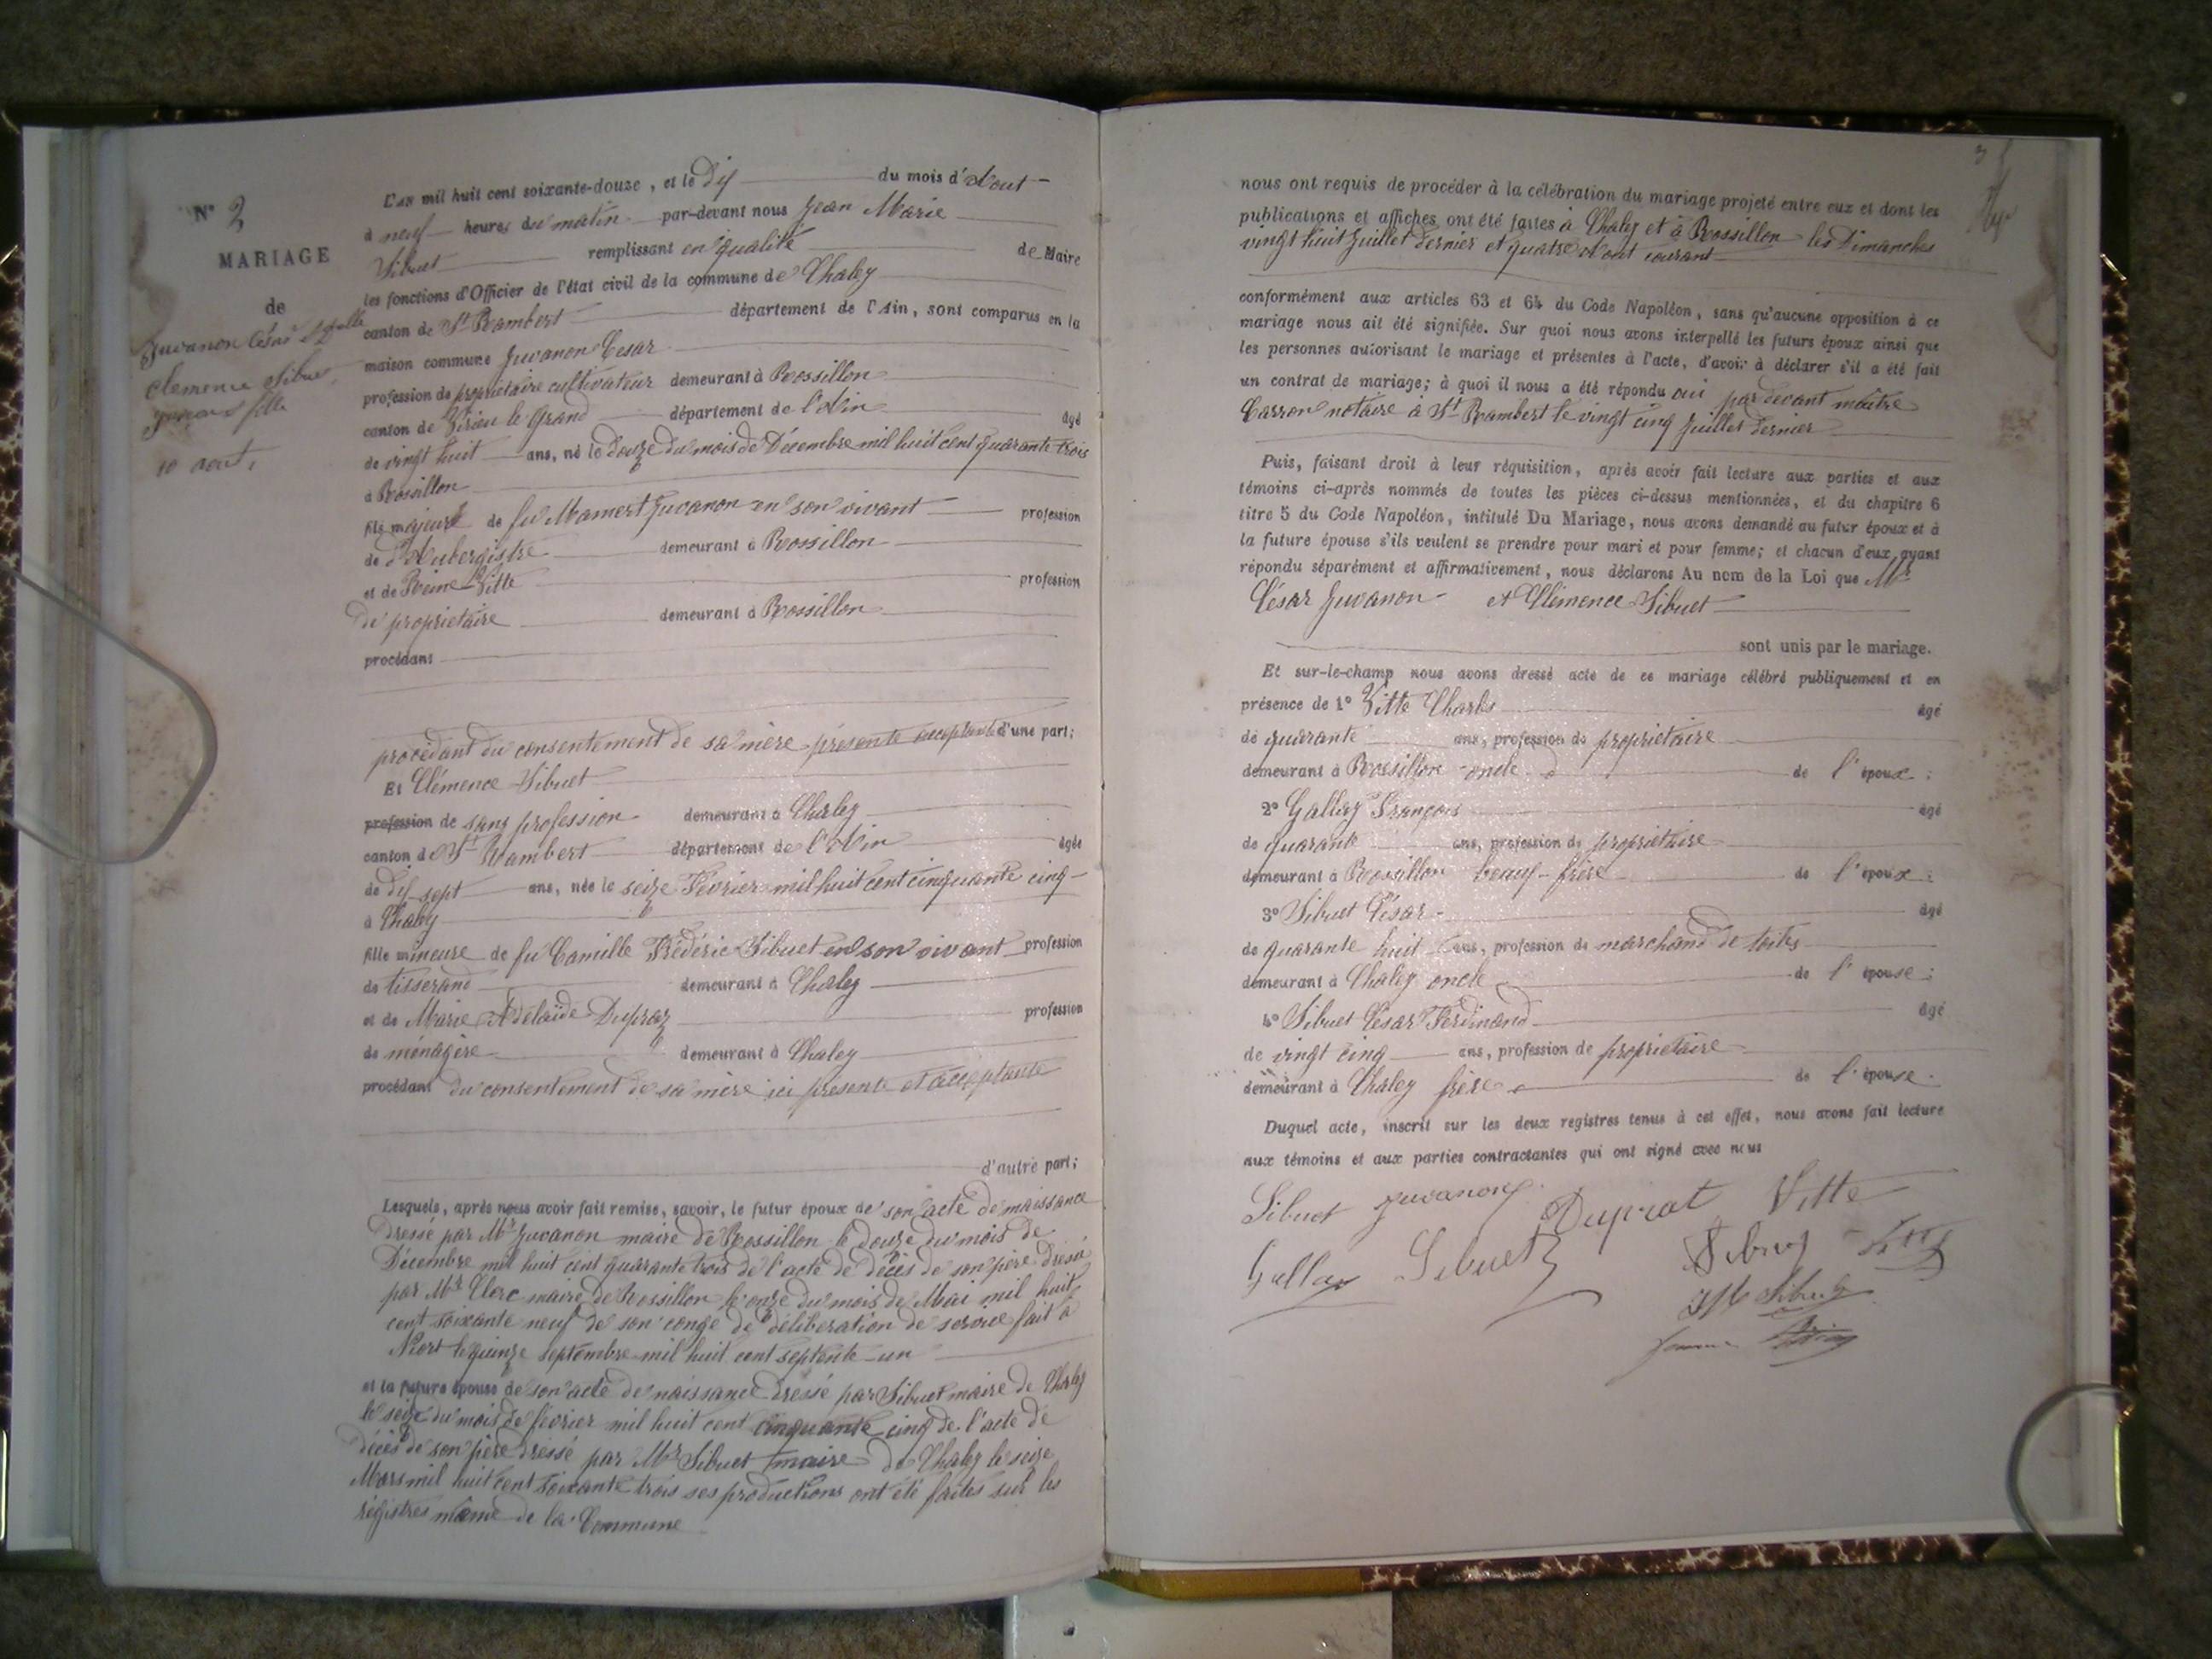 N° 2
MARIAGE
de
Juvanon César et Delle
Clemence Sibuet
garçon fille
10 aout
L'an mil huit cent soixante-douze, et le dix du mois d'Aout
à neuf heures du matin par-devant nous Jean Marie
Sibuet remplissant en qualité de Maire
les fonctions d'Officier de l'état civil de la commune de Chaley
canton de St Rambert département de l'Ain, sont comparus en la
maison commune Juvanon César
profession de propriétaire cultivateur demeurant à Rossillon
canton de Virieu le Grand département de l'Ain âgé
de vingt huit ans, né le douze du mois de Décembre mil huit cent quarante trois
à Rossillon
fils majeur de feu Mamert Juvanon en son vivant profession
de d'Aubergiste demeurant à Rossillon
et de Reine Vitte profession
de propriétaire demeurant à Rossillon
procédant
procédant du consentement de sa mère présente acceptante d'une part;
Et Clémence Sibuet
profession de sans profession demeurant à Chaley
canton de St Rambert département de l'Ain âgée
de dix sept ans, née le seize Février mil huit cent cinquante cinq
à Chaley
fille mineure de feu Camille Frédéric Sibuet en son vivant profession
de tisserand demeurant à Chaley
et de Marie Adelaïde Dupraz profession
de ménagère demeurant à Chaley
procédant du consentement de sa mère ici présente et acceptante
d'autre part;
Lesquels, après nous avoir fait remise, savoir, le futur époux de son acte de naissance
dressé par Mr Juvanon maire de Rossillon le douze du mois de
Décembre mil huit cent quarante trois de l'acte de décès de son père dressé
par Mr Clerc maire de Rossillon le onze du mois de Mai mil huit
cent soixante neuf de son congé de déliberation de service fait à
Niort le quinze septembre mil huit cent septente un
et la future épouse de son acte de naissance dressé par Sibuet maire de Chaley
le seize du mois de février mil huit cent cinquante cinq de l'acte de
décès de son père dressé par Mr Sibuet maire de Chaley le seize
Mars mil huit cent soixante trois ses productions ont été faites sur les
régistres même de la Commune
nous ont requis de procéder à la célébration du mariage projeté entre eux et dont les
publications et affiches ont été faites à Chaley et à Rossillon les Dimanches
vingt huit Juillet dernier et quatre Aout courant
conformément aux articles 63 et 64 du Code Napoléon, sans qu'aucune opposition à ce
mariage nous ait été signifiée. Sur quoi nous avons interpellé les futurs époux ainsi que
les personnes autorisant le mariage et présentes à l'acte, d'avoir à déclarer s'il a été fait
un contrat de mariage; à quoi il nous a été répondu oui par devant maitre
Carron notaire à St Rambert le vingt cinq Juillet dernier
Puis, faisant droit à leur réquisition, après avoir fait lecture aux parties et aux
témoins ci-après nommés de toutes les pièces ci-dessus mentionnées, et du chapitre 6
titre 5 du Code Napoléon, intitulé Du Mariage, nous avons demandé au futur époux et à
la future épouse s'ils veulent se prendre pour mari et pour femme; et chacun d'eux ayant
répondu séparément et affirmativement, nous déclarons Au nom de la Loi que Mr
César Juvanon et Clémence Sibuet
sont unis par le mariage.
Et sur-le-champ nous avons dressé acte de ce mariage célébré publiquement et en
présence de 1° Vitte Charles âgé
de quarante ans, profession de propriétaire
demeurant à Rossillon oncle de l'époux;
2° Gallay François âgé
de quarante ans, profession de propriétaire
demeurant à Rossillon beauf-frère de l'époux;
3° Sibuet César âgé
de quarante huit ans, profession de marchand de toiles
demeurant à Chaley oncle de l'épouse;
4° Sibuet César Ferdinand âgé
de vingt cinq ans, profession de propriétaire
demeurant à Chaley frère de l'épouse.
Duquel acte, inscrit sur les deux registres tenus à cet effet, nous avons fait lecture
aux témoins et aux parties contractantes qui ont signé avec nous
Sibuet Juvanon Duprat Vitte
Gallay Sibuet Sibuet
JM Sibuet